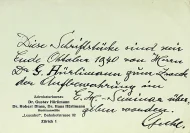 Diese Schriftstücke sind mir
Ende Oktober 1940 von Herrn
Dr. G. Hürlimann zum Zweck
der Aufbewahrung im
Seminar über-
geben worden.
Advokaturbureau
Dr. Gustav Hürlimann
Dr. Robert Dr. Hans Hürlimann
Rechtsanwälte
Bahnhofstrasse
Zürich 1